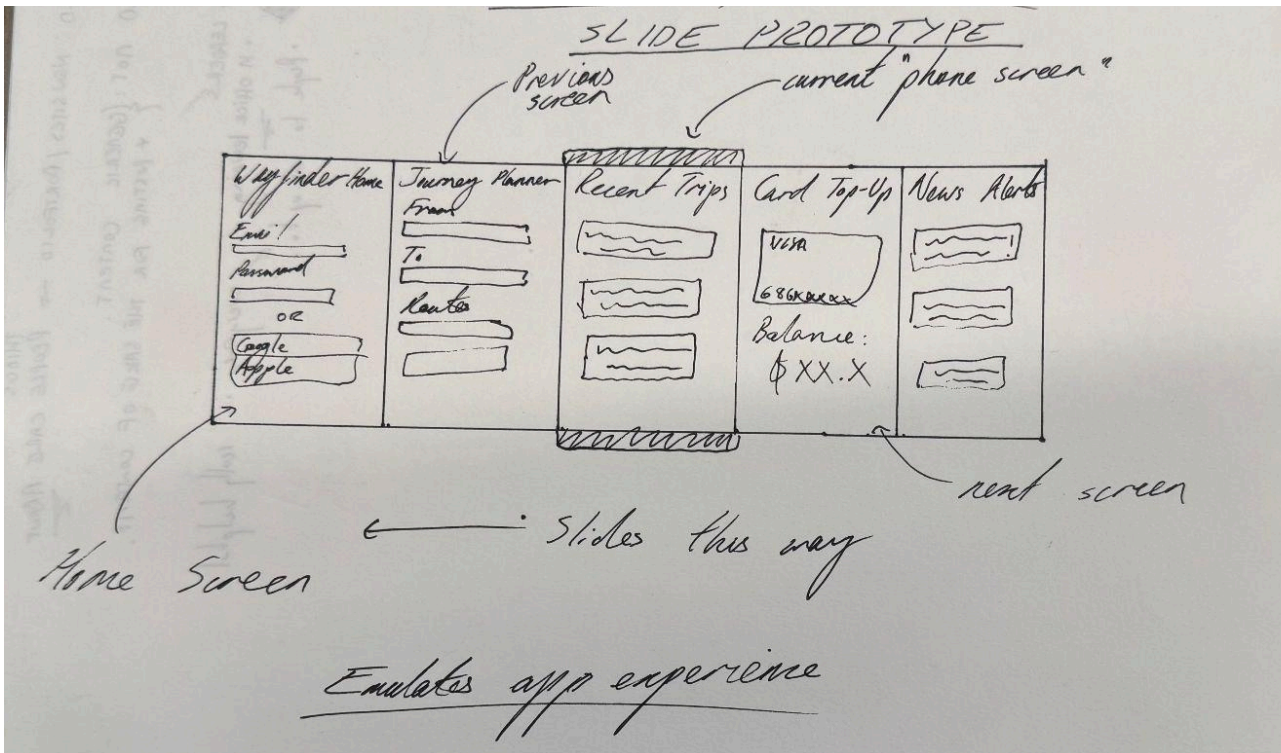 SLIDE PROTOTYPE
Previous screen
current "phone screen"
Wayfinder Home
Email
Password
OR
Google
Apple
Journey Planner
From
To
Routes
Recent Trips
Card Top-Up
VISA
686XXXXX
Balance:
$XX.X
News Alerts
next screen
Home Screen
Slides this way
Emulates app experience